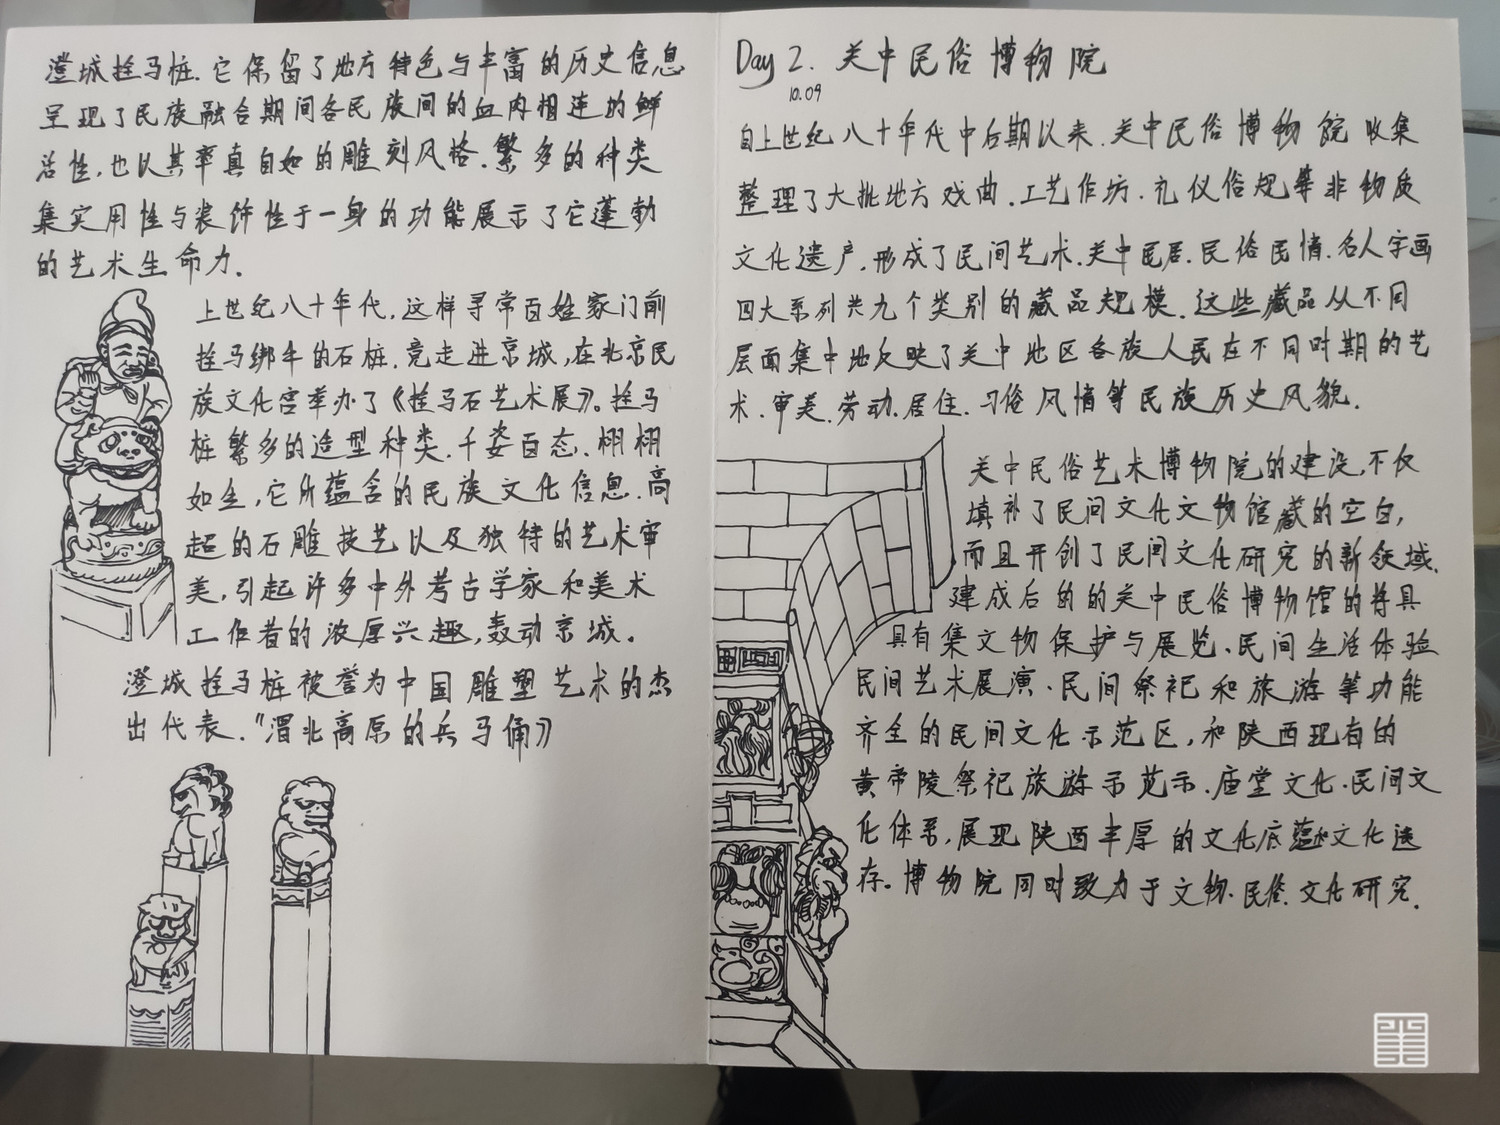 澄城拴马桩.它保留了地方特色与丰富的历史信息
呈现了民族融合期间各民族间的血肉相连的鲜
活性,也以其率真自如的雕刻风格.繁多的种类
集实用性与装饰性于一身的功能展示了它蓬勃
的艺术生命力.
上世纪八十年代,这样寻常百姓家门前
拴马绑牛的石桩.竟走进京城,在北京民
族文化宫举办了《拴马石艺术展》。拴马
桩繁多的造型种类.千姿百态、栩栩
如生,它所蕴含的民族文化信息.高
超的石雕技艺以及独特的艺术审
美,引起许多中外考古学家和美术
工作者的浓厚兴趣,轰动京城。
澄城拴马桩被誉为中国雕塑艺术的杰
出代表."渭北高原的兵马俑》
Day 2. 关中民俗博物院
10.09
自上世纪八十年代中后期以来.关中民俗博物院收集
整理了大批地方戏曲.工艺作坊.礼仪俗规等非物质
文化遗产,形成了民间艺术.关中民居.民俗民情.名人字画
四大系列共九个类别的藏品规模.这些藏品从不同
层面集中地反映了关中地区各族人民在不同时期的艺
术.审美.劳动.居住.习俗风情等民族历史风貌.
关中民俗艺术博物院的建设,不仅
填补了民间文化文物馆藏的空白,
而且开创了民间文化研究的新领域.
建成后的的关中民俗博物馆的将具
具有集文物保护与展览、民间生活体验
民间艺术展演、民间祭祀和旅游等功能
齐全的民间文化示范区,和陕西现有的
黄帝陵祭祀旅游示范示.庙堂文化.民间文
化体系,展现陕西丰厚的文化底蕴和文化遗
存。博物院同时致力于文物.民俗.文化研究.